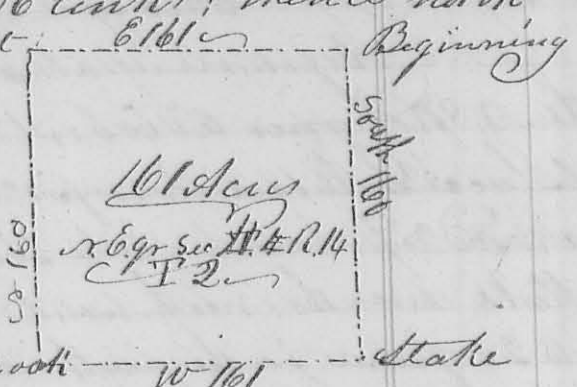 thence north
E 161
Beginning
South 160
161 Acres
N.E. qr Sec 4 R. 14
T 2
160
Stake
W 161